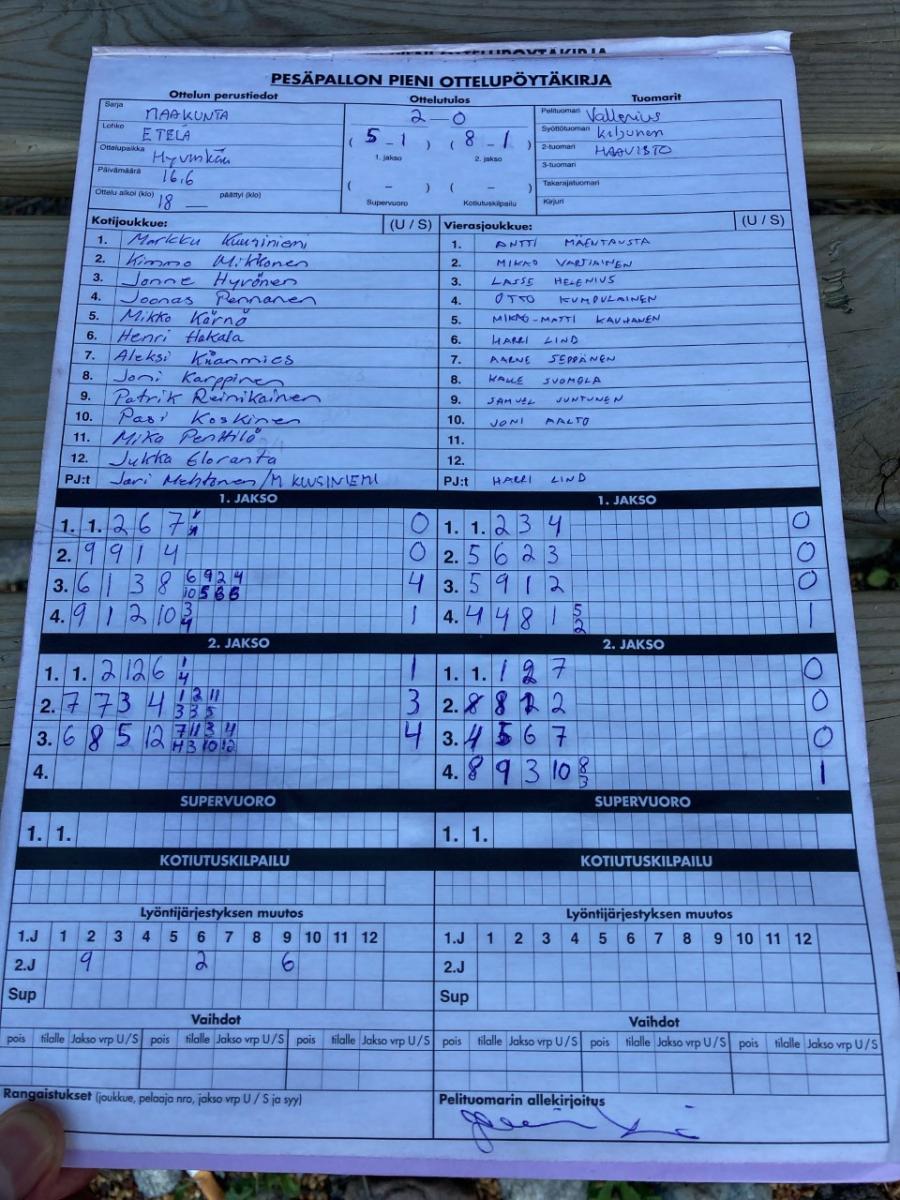 PESÄPALLON PIENI OTTELUPÖYTÄKIRJA
Ottelun perustiedot Ottelutulos Tuomarit
Sarja MAAKUNTA
Lohko ETELÄ
Ottelupaikka Hyvinkää
Päivämäärä 16.6
Ottelu alkoi (klo) 18 — päättyi (klo)
2 – 0
( 5 - 1 ) ( 8 - 1 )
1. jakso 2. jakso
( – ) ( – )
Supervuoro Kotiutuskilpailu
Pelituomari Vallenius
Syöttötuomari Kiljunen
2-tuomari HAAVISTO
3-tuomari
Takarajatuomari
Kirjuri
Kotijoukkue: (U / S) Vierasjoukkue: (U / S)
1. Markku Kuusiniemi 1. ANTTI MÄENTAUSTA
2. Kimmo Mikkonen 2. MIKKO VARTIAINEN
3. Janne Hyvönen 3. LASSE HELENIUS
4. Joonas Pennanen 4. OTTO KUMPULAINEN
5. Mikko Kärnä 5. MIKKO-MATTI KAUHANEN
6. Henri Hakala 6. HARRI LIND
7. Aleksi Kiianmies 7. AARNE SEPPÄNEN
8. Joni Karppinen 8. KALLE SUOMELA
9. Patrik Reinikainen 9. SAMUEL JUNTUNEN
10. Pasi Koskinen 10. JONI AALTO
11. Mika Penttilä 11.
12. Jukka Eloranta 12.
PJ:t Jari Mehtonen/M KUUSINIEMI PJ:t HARRI LIND
1. JAKSO 1. JAKSO
1. 1. 2 6 7 0 1. 1. 2 3 4 0
2. 9 9 1 4 0 2. 5 6 2 3 0
3. 6 1 3 8 6 9 2 4 4 3. 5 9 1 2 0
10 5 6 8
4. 9 1 2 10 3 1 4. 4 4 8 1 5 1
4 2
2. JAKSO 2. JAKSO
1. 1. 2 12 6 1 1 1. 1. 1 2 7 0
4
2. 7 7 3 4 1 2 11 3 2. 8 8 1 2 0
3 3 5
3. 6 8 5 12 7 11 3 4 4 3. 4 5 6 7 0
11 3 10 12
4. 4. 8 9 3 10 8 1
3
SUPERVUORO SUPERVUORO
1. 1. 1. 1.
KOTIUTUSKILPAILU KOTIUTUSKILPAILU
Lyöntijärjestyksen muutos Lyöntijärjestyksen muutos
1.J 1 2 3 4 5 6 7 8 9 10 11 12 1.J 1 2 3 4 5 6 7 8 9 10 11 12
2.J 9 2 6 2.J
Sup Sup
Vaihdot Vaihdot
pois tilalle Jakso vrp U / S pois tilalle Jakso vrp U / S pois tilalle Jakso vrp U / S pois tilalle Jakso vrp U / S pois tilalle Jakso vrp U / S pois tilalle Jakso vrp U / S
Rangaistukset (joukkue, pelaaja nro, jakso vrp U / S ja syy) Pelituomarin allekirjoitus